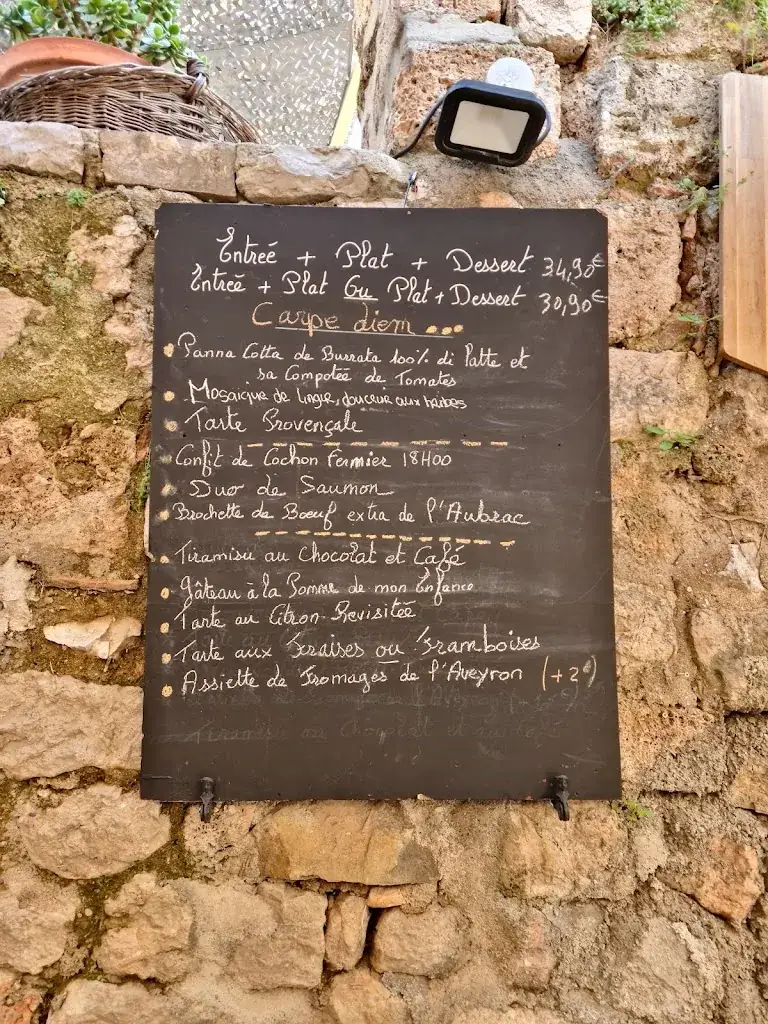 Entrée + Plat + Dessert 34,90€
Entrée + Plat Ou Plat + Dessert 30,90€
Carpe diem...
Panna Cotta de Burrata 100% di Latte et
sa Compotée de Tomates
Mosaïque de Lingue, douceur aux herbes
Tarte Provençale
Confit de Cochon Fermier 18H00
Duo de Saumon
Brochette de Bœuf extra de l'Aubrac
Tiramisu au Chocolat et Café
Gâteau à la Pomme de mon Enfance
Tarte au Citron Revisitée
Tarte aux Fraises ou Framboises
Assiette de Fromages de l'Aveyron (+2€)
Tiramisu au Chocolat et au Café